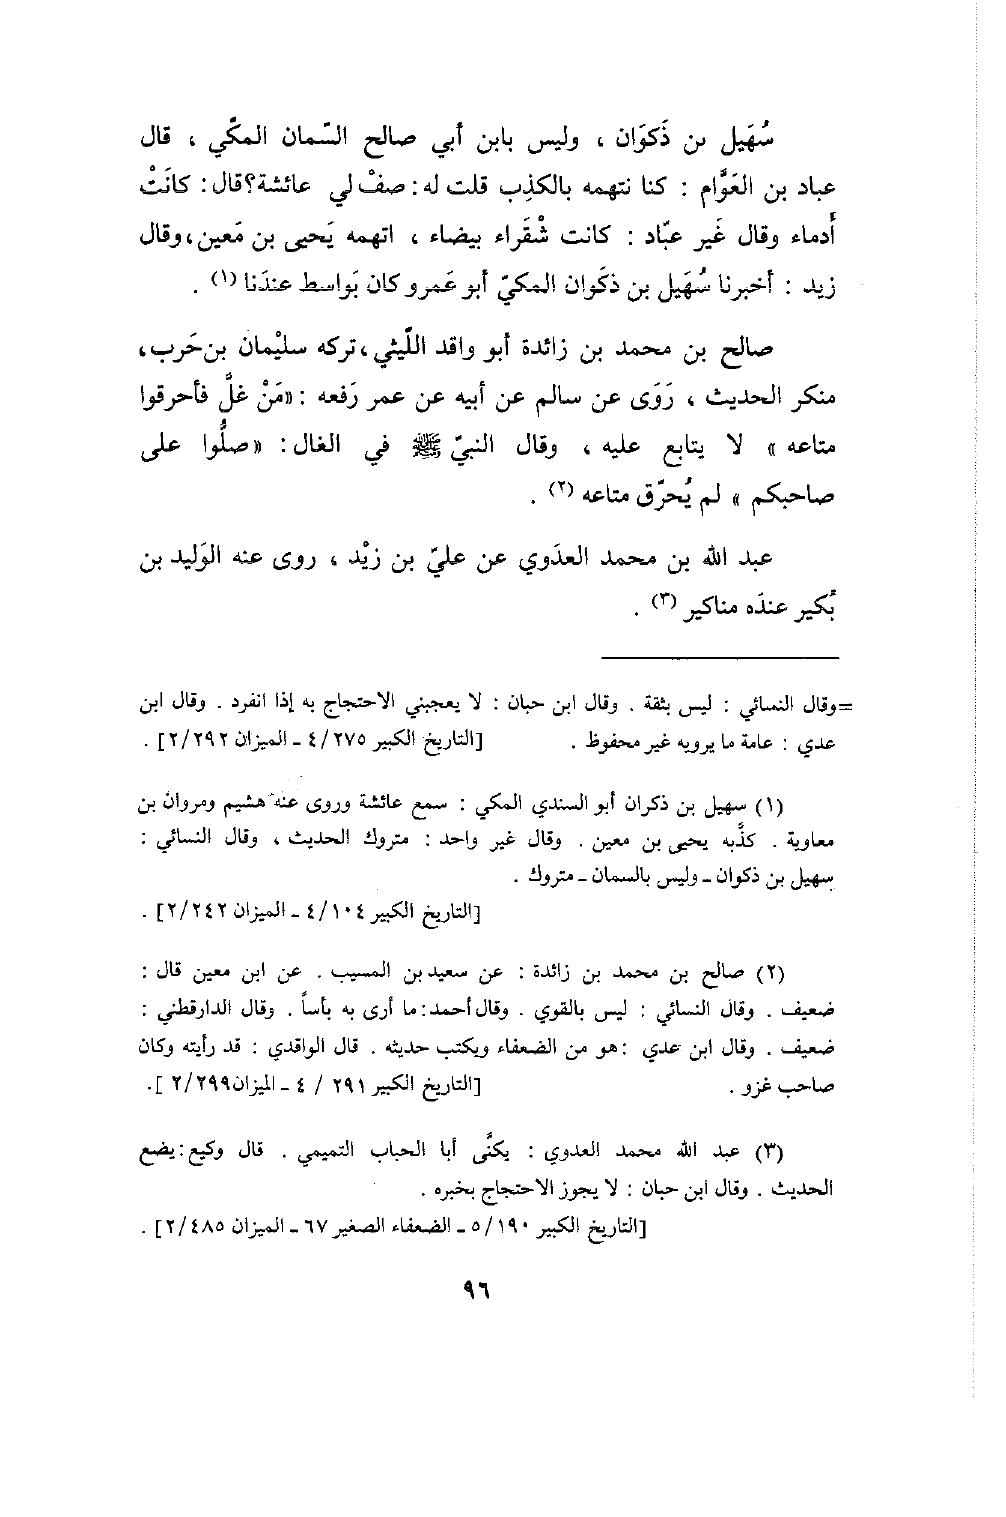 سُهَيل بن ذَكوَان ، وليس بابن أبي صالح السّمان المكّي ، قال
عباد بن العَوَّام : كنا نتهمه بالكذِب قلت له : صفْ لي عائشة؟ قال : كانَتْ
أَدماء وقال غَير عبّاد : كانت شْقَراء بيضاء ، اتهمه يَحيى بن مَعين ، وقال
زيد : أخبرنا سُهَيل بن ذكَوان المكيّ أبو عَمرو كان بَواسط عندَنا (١) .
صالح بن محمد بن زائدة أبو واقد اللّيثي ، تركه سليْمان بن حَرب ،
منكر الحديث ، رَوَى عن سالم عن أبيه عن عمر رَفعه : «مَنْ غلَّ فأحرقوا
متاعه » لا يتابع عليه ، وقال النبيّ ﷺ في الغال : « صلُّوا على
صاحبكم » لم يُحرّق متاعه (٢) .
عبد الله بن محمد العدَوي عن عليّ بن زيْد ، روى عنه الوَليد بن
بُكير عندَه مناكير (٣) .
=وقال النسائي : ليس بثقة . وقال ابن حبان : لا يعجبني الاحتجاج به إذا انفرد . وقال ابن
عدي : عامة ما يرويه غير محفوظ . [التاريخ الكبير ٢٧٥/ ٤ ـ الميزان ٢/٢٩٢] .
(١) سهيل بن ذكران أبو السندي المكي : سمع عائشة وروى عنه هشيم ومروان بن
معاوية . كذَّبه يحيى بن معين . وقال غير واحد : متروك الحديث ، وقال النسائي :
سهيل بن ذكوان ـ وليس بالسمان ـ متروك .
[التاريخ الكبير ١٠٤/ ٤ ـ الميزان ٢/٢٤٢] .
(٢) صالح بن محمد بن زائدة : عن سعيد بن المسيب . عن ابن معين قال :
ضعيف . وقال النسائي : ليس بالقوي . وقال أحمد : ما أرى به بأساً . وقال الدارقطني :
ضعيف . وقال ابن عدي : هو من الضعفاء ويكتب حديثه . قال الواقدي : قد رأيته وكان
صاحب غزو . [التاريخ الكبير ٢٩١ / ٤ ـ الميزان ٢/٢٩٩ ].
(٣) عبد الله محمد العدوي : يكنَّى أبا الحباب التميمي . قال وكيع : يضع
الحديث . وقال ابن حبان : لا يجوز الاحتجاج بخبره .
[التاريخ الكبير ١٩٠/ ٥ ـ الضعفاء الصغير ٦٧ ـ الميزان ٢/٤٨٥] .
٩٦